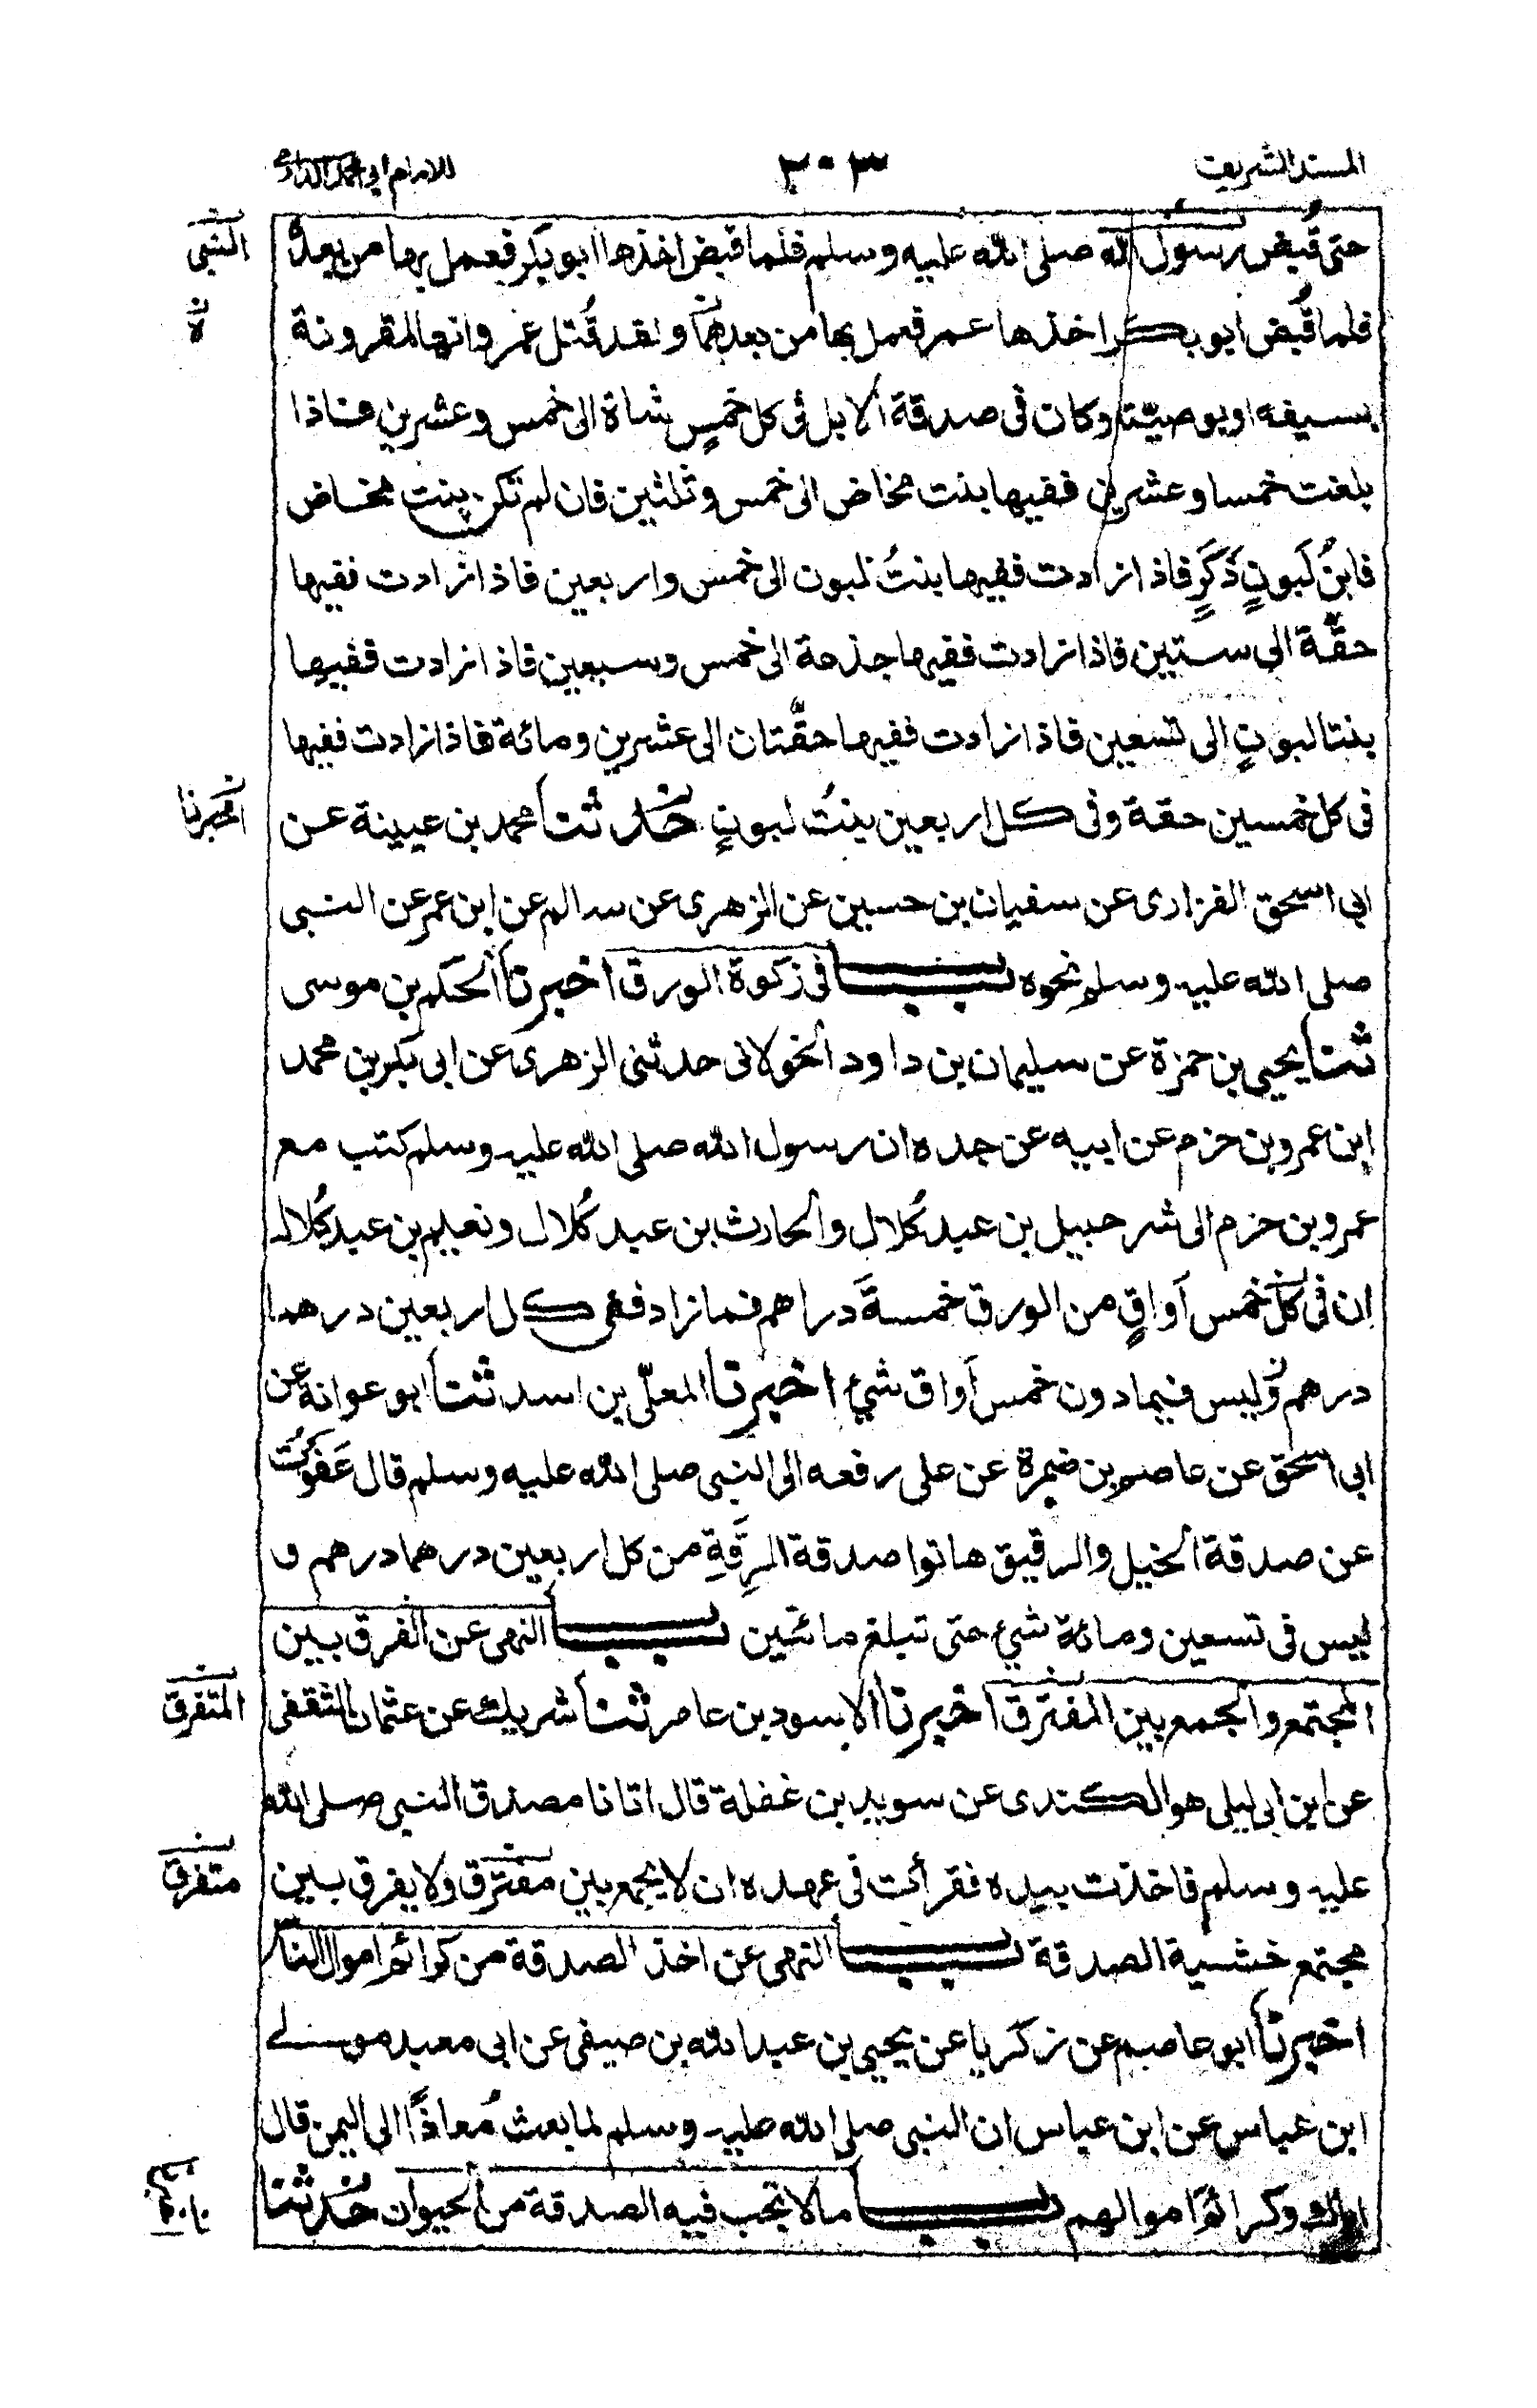 المسند الشريف ٢٠٣ للامام ابي محمد الدارمي
حتى قُبض رسول الله صلى الله عليه وسلم فلما قبض اخذها ابو بكر فعمل بها من بعدهٖ
النبي
فلما قُبض ابو بكر اخذها عمر فعمل بها من بعدهما ولقد قُتل عمر وانها لمقرونة
ه
بسيفه او بوصيّته وكان فى صدقة الابل فى كل خمسٍ شاة الى خمس وعشرين فاذا
بلغت خمسا وعشرين ففيها بنت مخاض الى خمس وثلثين فان لم تكن بنت مخاض
فابنُ لَبونٍ ذَكَرٍ فاذا زادت ففيها بنتُ لبون الى خمس واربعين فاذا زادت ففيها
حقّة الى ستين فاذا زادت ففيها جذعة الى خمس وسبعين فاذا زادت ففيها
بنتا لبونٍ الى تسعين فاذا زادت ففيها حقّتان الى عشرين ومائة فاذا زادت ففيها
فى كل خمسين حقة وفى كل اربعين بنتُ لبونٍ حدثنا محمد بن عيينة عن
اخبرنا
ابى اسحق الفزارى عن سفيان بن حسين عن الزهرى عن سالم عن ابن عمر عن النبى
صلى الله عليه وسلم نحوه باب فى زكوة الورق اخبرنا الحكم بن موسى
ثنا يحيى بن حمزة عن سليمان بن داود الخولانى حدثنى الزهرى عن ابى بكر بن محمد
ابن عمرو بن حزم عن ابيه عن جده ان رسول الله صلى الله عليه وسلم كتب مع
عمرو بن حزم الى شرحبيل بن عبد كُلال والحارث بن عبد كُلال ونعيم بن عبد كُلال
ان فى كل خمس اَواقٍ من الورق خمسةَ دراهم فما زاد ففى كل اربعين درهما
درهم وليس فيما دون خمس اَواق شئ اخبرنا المعلّى بن اسد ثنا ابو عوانة عن
ابى اسحق عن عاصم بن ضمرة عن على رفعه الى النبى صلى الله عليه وسلم قال عَفوتُ
عن صدقة الخيل والرقيق هاتوا صدقة الرِقَةِ من كل اربعين درهما درهم و
ليس فى تسعين ومائة شئ حتى تبلغ مائتين باب النهى عن الفرق بين
المجتمع والجمع بين المفترق اخبرنا الاسود بن عامر ثنا شريك عن عثمان الثقفى
المتفرق
عن ابن ابى ليلى هو الكندى عن سويد بن غفلة قال اتانا مصدق النبى صلى الله
عليه وسلم فاخذت بيده فقرأت فى عهده ان لا يجمع بين مفترق ولا يفرق بين
متفرق
مجتمع خشية الصدقة باب النهى عن اخذ الصدقة من كرائم اموال الناس
اخبرنا ابو عاصم عن زكريا عن يحيى بن عبد الله بن صيفى عن ابى معبد مولى
ابن عباس عن ابن عباس ان النبى صلى الله عليه وسلم لما بعث مُعاذًا الى اليمن قال
اياك وكرائم اموالهم باب مالا تجب فيه الصدقة من الحيوان حدثنا